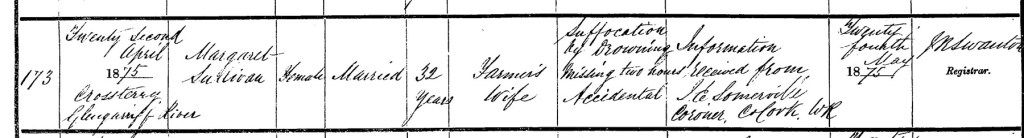 173
Twenty Second
April
1875
Crossterry
Glengarriff River
Margaret
Sullivan
Female
Married
32
Years
Farmer's
Wife
Suffocation
by Drowning
Missing two hours
Accidental
Information
received from
Coroner, Co Cork, WR
Twenty
fourth
May
1875
Registrar.